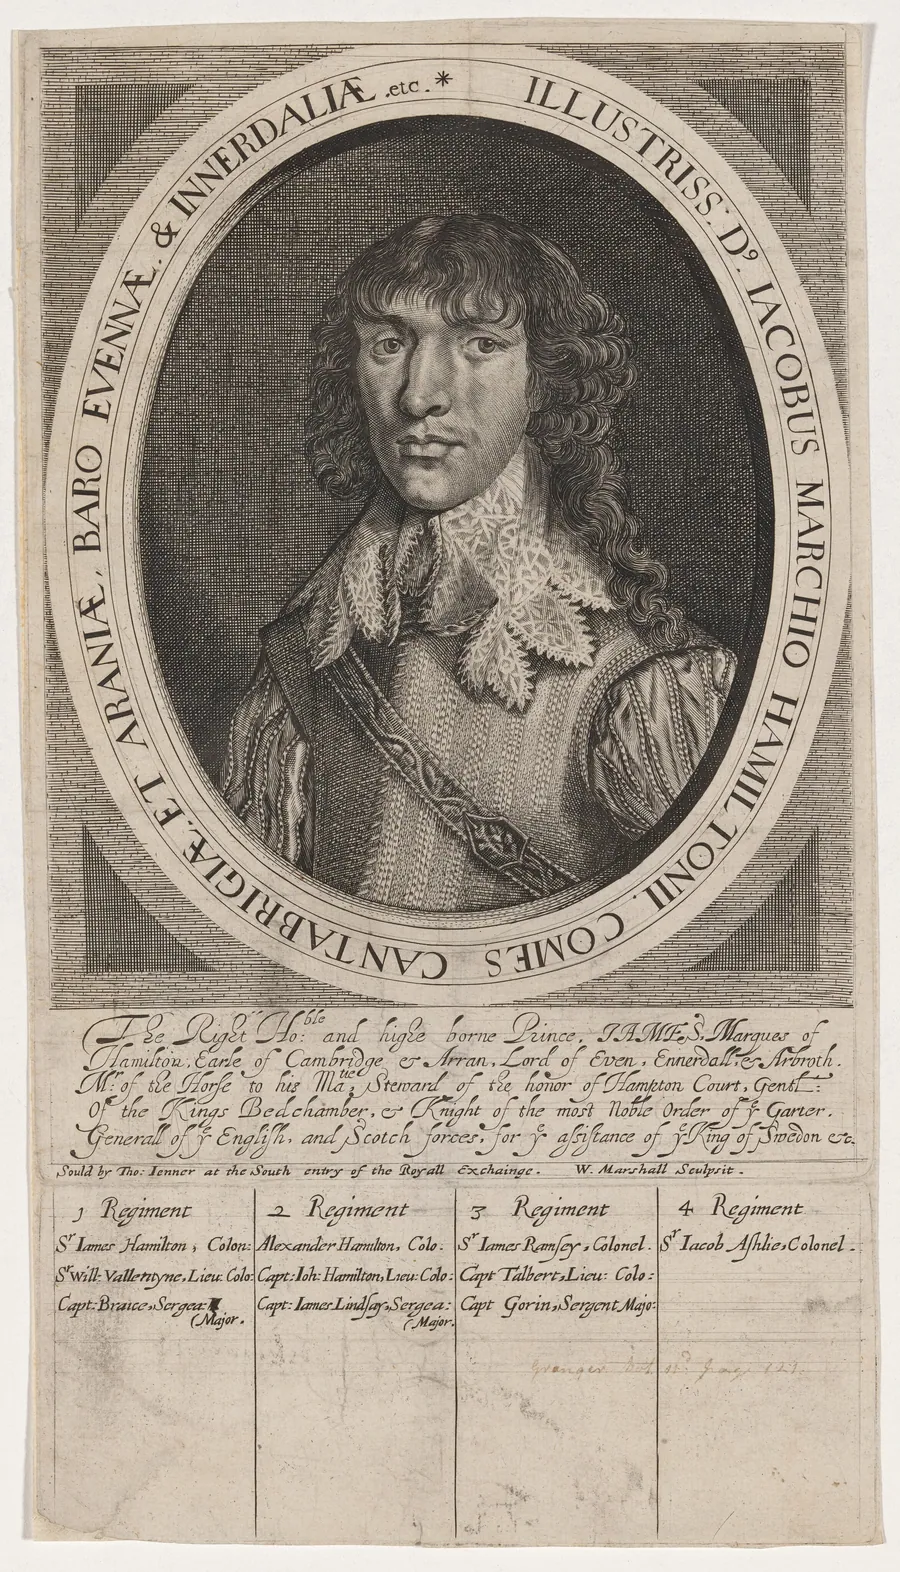 ILLUSTRISS: Dꝰ. IACOBUS MARCHIO HAMILTONII. COMES CANTABRIGIÆ. ET ARANIÆ, BARO EVENNÆ. & INNERDALIÆ .etc. *
The Right Ho:ble and highe borne Prince, IAMES, Marques of
Hamilton, Earle of Cambridge & Arran, Lord of Even, Ennerdall, & Arbroth.
Mr: of the Horse to his Matie: Steward of the honor of Hampton Court, Gentl:
Of the Kings Bedchamber, & Knight of the most Noble Order of ye Garter.
Generall of ye English, and Scotch forces, for ye assistance of ye King of Swedon &c.
Sould by Tho: Ienner at the South entry of the Royall Exchainge. W. Marshall Sculpsit.
1 Regiment
Sr Iames Hamilton, Colon:
Sr Will: Vallentyne, Lieu: Colo:
Capt: Braice, Sergea:
(Major.
2 Regiment
Alexander Hamilton, Colo.
Capt: Ioh: Hamilton, Lieu: Colo:
Capt: Iames Lindsay, Sergea:
(Major.
3 Regiment
Sr Iames Ramsey, Colonel.
Capt Talbert, Lieu: Colo:
Capt Gorin, Sergent Majo:
4 Regiment
Sr Iacob Ashlie, Colonel.
Granger